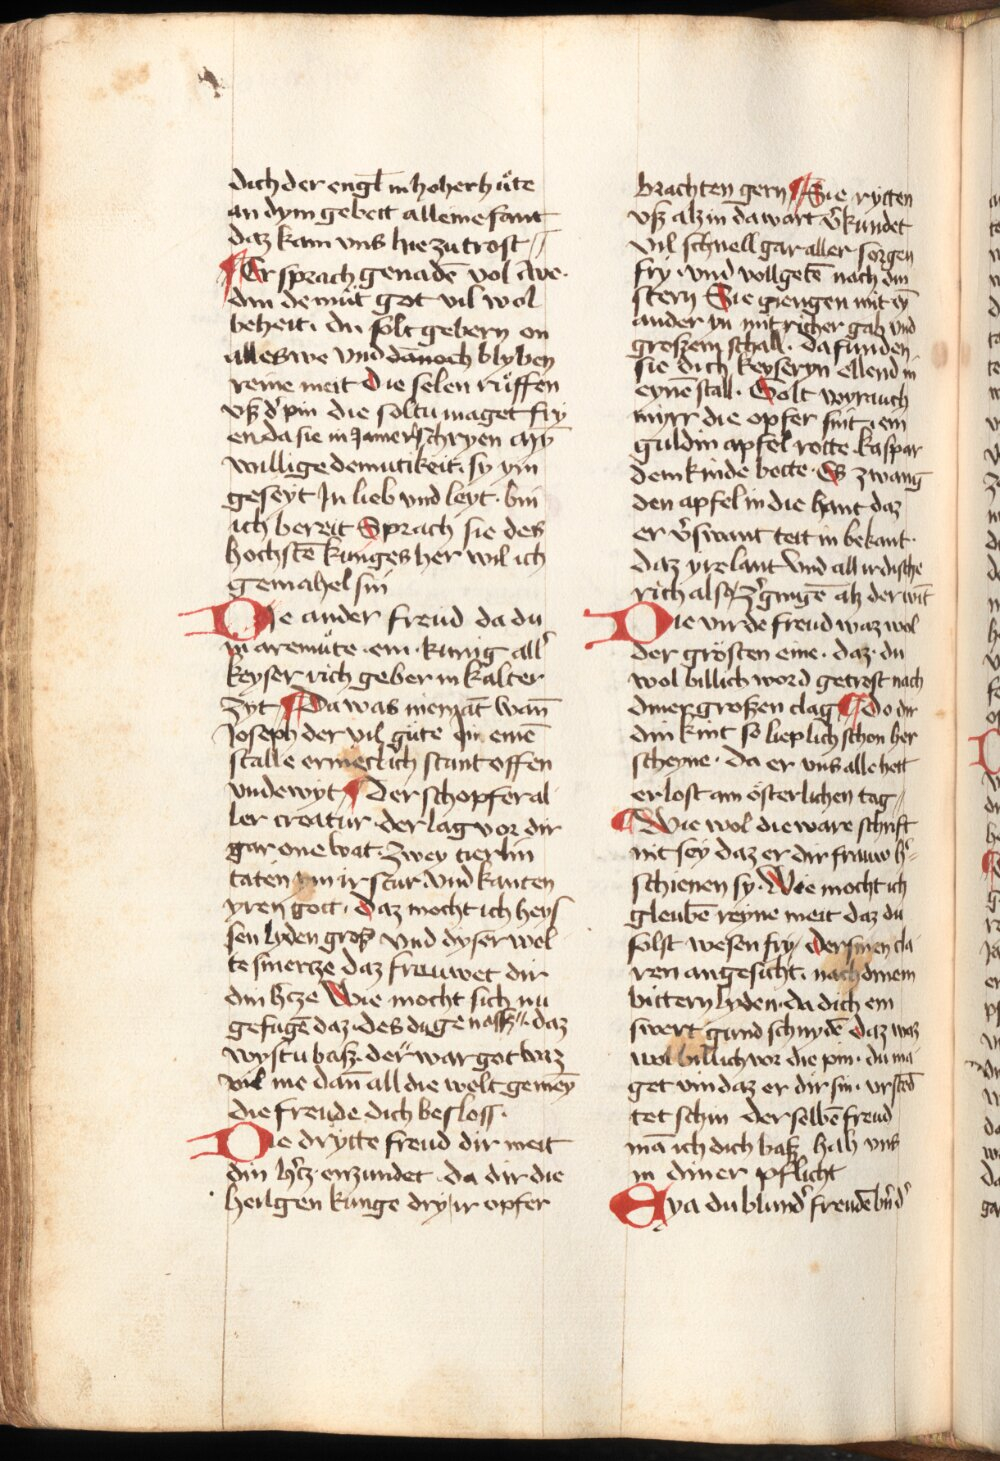 dich der engl̄ in hoher hůte
an dym gebett alleine fant
daz kam vns hie zu trost //
¶ Er sprach genadē vol Ave·
din demůt got vil wol
beheit· du solt gebern on
alles we vnd dānoch blyben
reine meit Die selen růffen
vß d' pin die soltu maget fry
en da sie in Jamer schryen
willige demutikeit· sy ym
geseyt In lieb vnd leyt· bin
ich bereit Sprach sie des
hochstē kunges her wil ich
gemahel sin
Die ander freud da du
in aremůte· ein· kunig all'
keyser rich geber in kalter
zyt ¶ Da was niemāt wañ
Joseph der vil gůte in einē
stalle ermeclich stunt offen
vnde wyt ¶ Der schopfer al
ler creatur der lag vor dir
gar one wat· Zwey tierlin
taten ym ir stur vnd kanten
yren gott· daz mocht ich heys
sen lyden groß vnd dyser wel
te smertze daz freuwet dir
din h'cze Wie mocht sich nu
gefugē daz· des du genasß· daz
wystu baß· der war got vnz
vil me dañ all die welt gemey
die freude dich besloss·
Die drytte freud dir meit
din h'cz enzundet da dir die
heilgen kunge dry ir opfer
brachten gern ¶ Sie rytten
vß alz in da wart v'kundet
vil schnell gar aller sorgen
fry· vnd vollgetē nach dm
stern Sie giengen mit eȳ
ander yn mit richer gab vnd
großem schall· da funden
sie dich keyseryn ellend in
eynē stall· Golt wyrauch
myrr die opfer sint· ein
guldin apfel rotte kaspar
dem kinde botte· Es zwang
den apfel in die hant daz
er v'swant teit in bekant·
daz yrelant vnd all irdische
rich also z'gingē alz der wīt
Die virde freud waz wol
der grösten eine· daz· du
wol billich word getrost nach
diner großen clag ¶ Do dir
din kint so lieplich schon her
scheyne· da er vns alle hett
erlost am österlichen tag //
¶ Wie wol die ware schrift
nit sey daz er dir frauw h'=
schienen sy· Wie mocht ich
gleubē reyne meit daz du
solst wesen fry / der sinen cla
ren angesicht· nach dinem
bittern lyden· da dich ein
swert gund schnydē Daz waz
wol billich vor die pin· du ma
get vin daz er dir sin· vrsted
tet schin der selbē freud
mā ich dich baß hab vns
in diner pflicht
Eya du blund' freudē